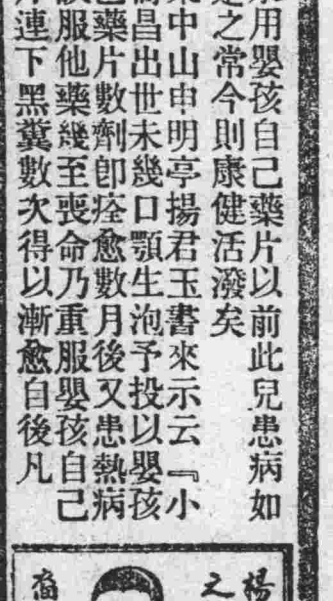 用嬰孩自己藥片以前此兒患病如
之常今則康健活潑矣
中山申明亭揚君玉書來示云『小
昌出世未幾口顎生泡予投以嬰孩
藥片數劑卽痊愈數月後又患熱病
服他藥幾至喪命乃重服嬰孩自己
連下黑糞數次得以漸愈自後凡
楊
之
裔